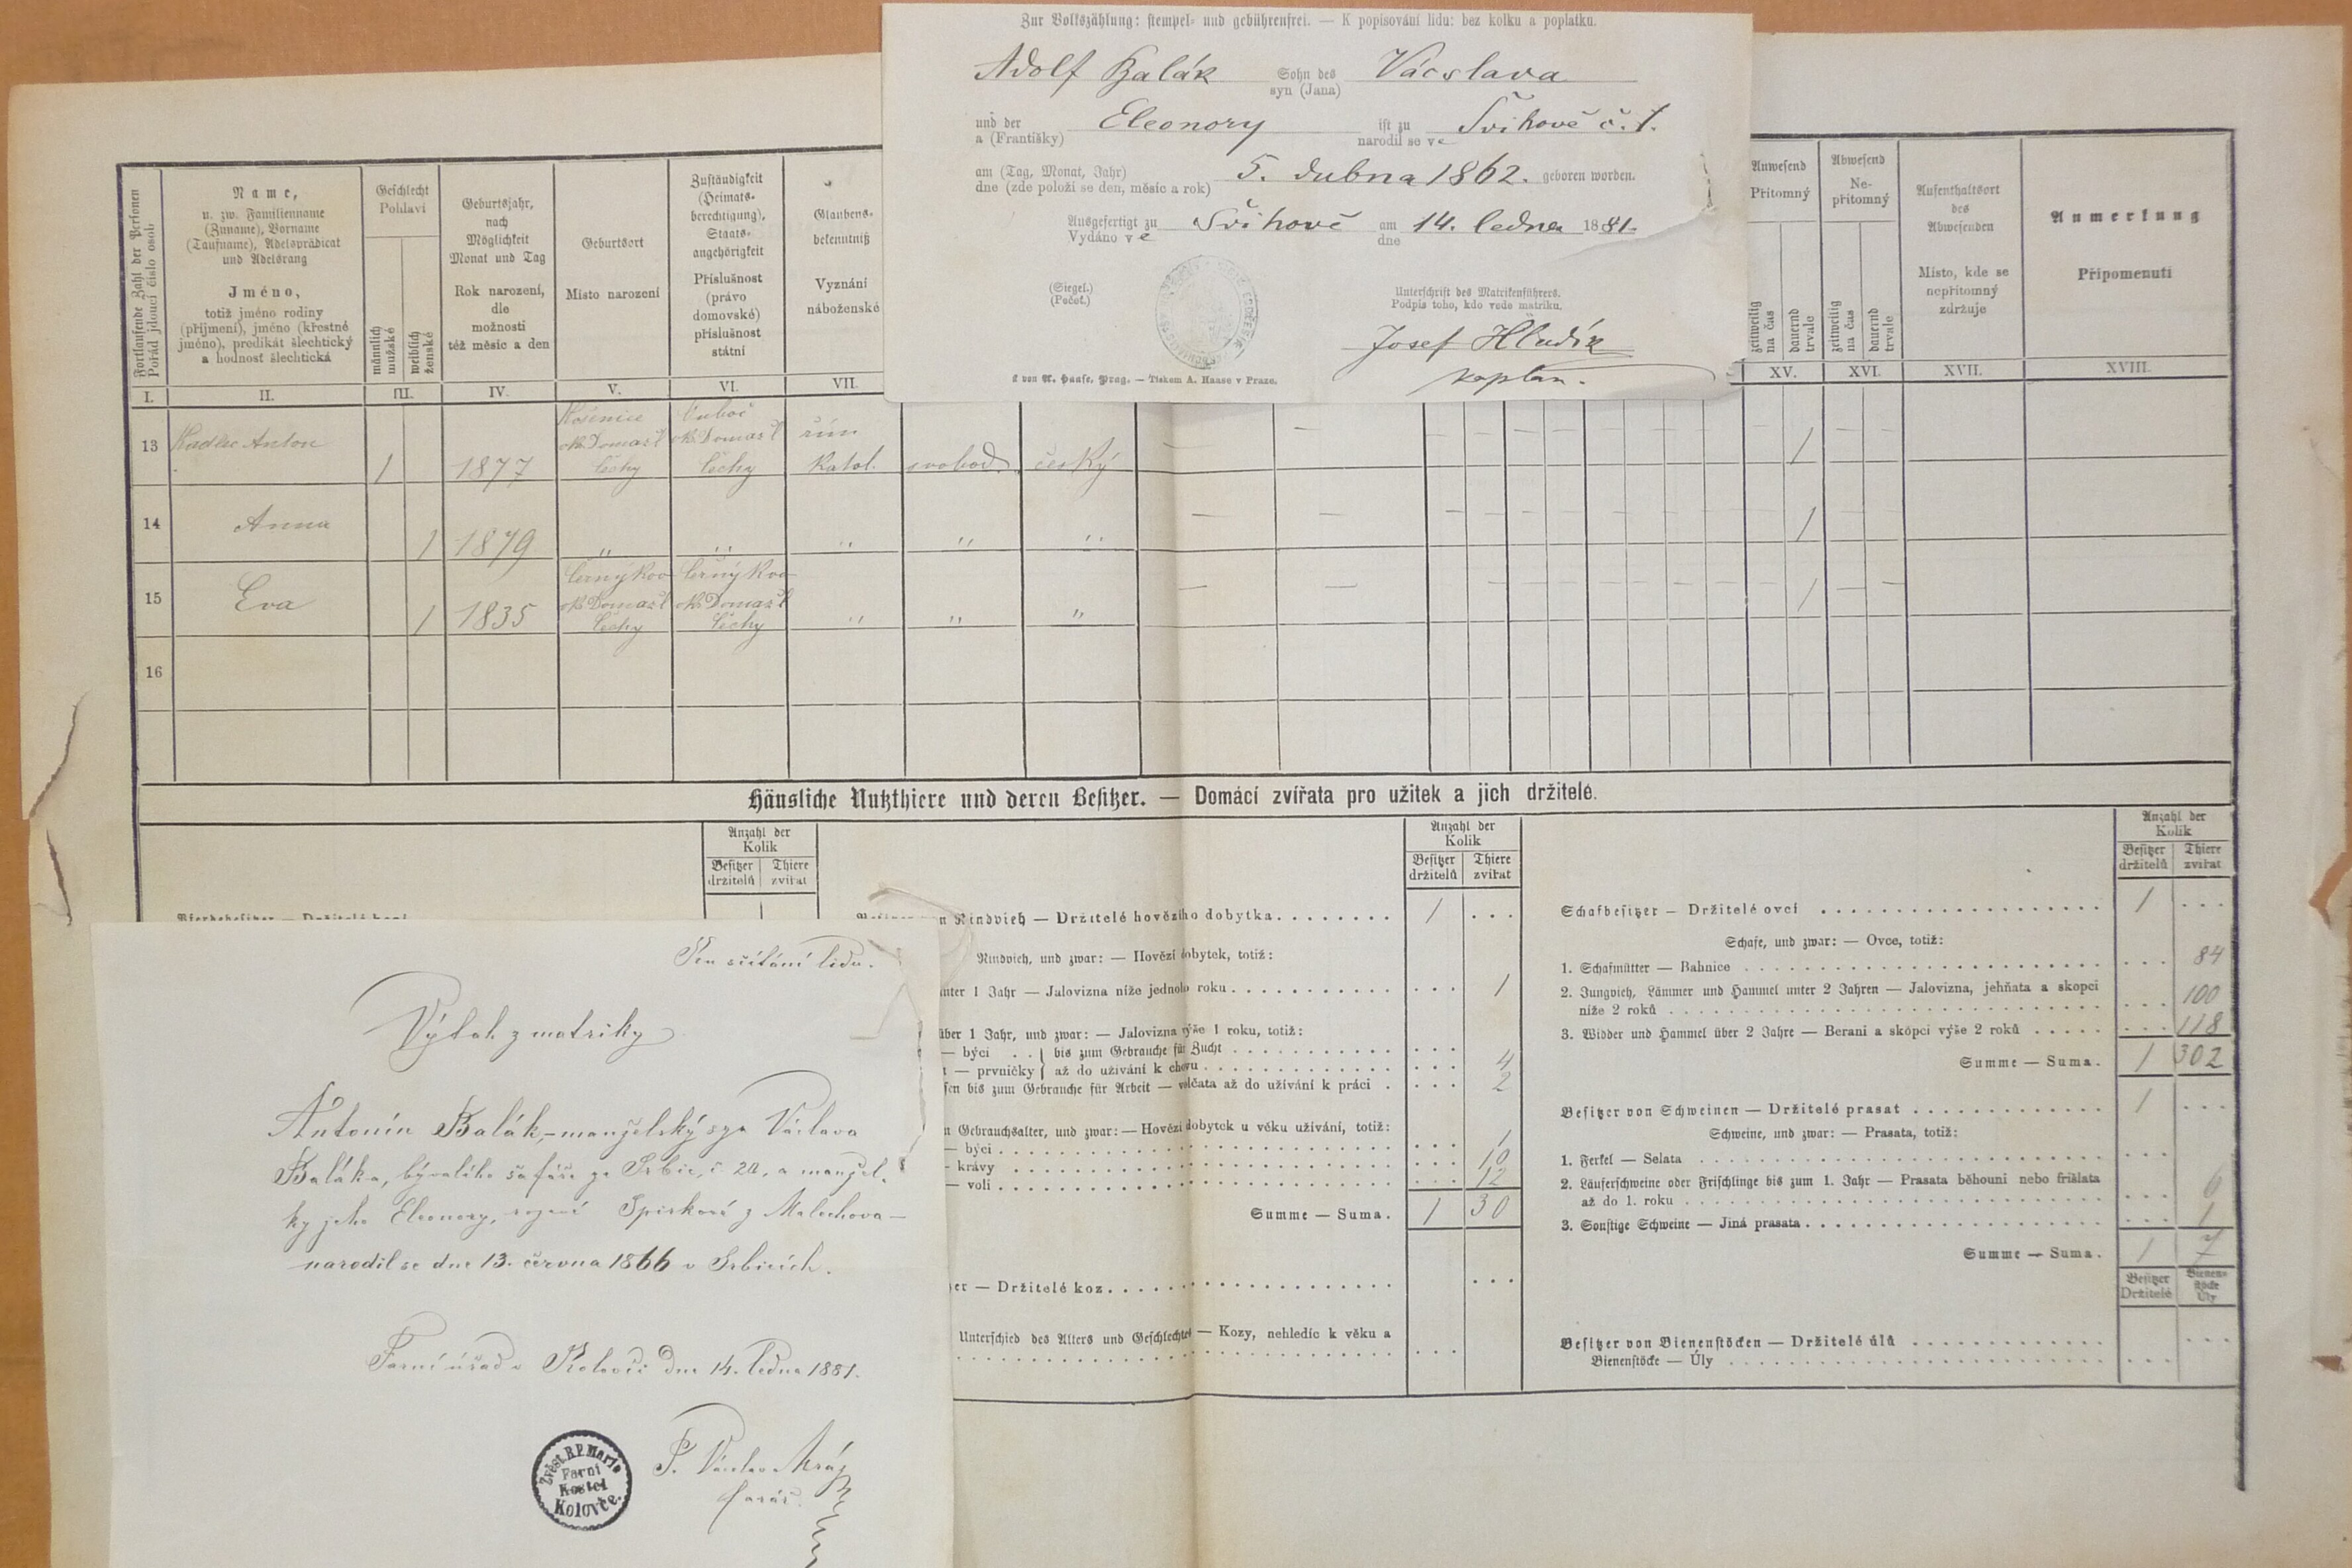 Zur Volkszählung: stempel- und gebührenfrei. — K popisování lidu: bez kolku a poplatku.
Adolf Balák Sohn des Vácslava
syn (Jana)
und der Eleonory ist zu Švihově č. 1.
a (Františky) narodil se ve
am (Tag, Monat, Jahr) 5. dubna 1862. geboren worden.
dne (zde položí se den, měsíc a rok)
Ausgefertigt zu Švihově am 14. ledna 1881.
Vydáno ve dne
(Siegel.)
(Pečeť.)
Unterschrift des Matrikenführers.
Podpis toho, kdo vede matriku.
Josef Hludík
kaplan.
von A. Haase, Prag. — Tiskem A. Haase v Praze.
Fortlaufende Zahl der Personen
Pořád jdoucí číslo osob.
Name,
u. zw. Familienname
(Zuname), Vorname
(Taufname), Adelsprädicat
und Adelsrang
Jméno,
totiž jméno rodiny
(příjmení), jméno (křestné
jméno), predikát šlechtický
a hodnosť šlechtická
Geschlecht
Pohlaví
männlich
mužské
weiblich
ženské
Geburtsjahr,
nach
Möglichkeit
Monat und Tag
Rok narození,
dle
možnosti
též měsíc a den
Geburtsort
Místo narození
Zuständigkeit
(Heimats-
berechtigung),
Staats-
angehörigkeit
Příslušnost
(právo
domovské)
příslušnost
státní
Glaubens-
bekenntniß
Vyznání
náboženské
Anwesend
Přítomný
zeitweilig
na čas
dauernd
trvale
Abwesend
Ne-
přítomný
zeitweilig
na čas
dauernd
trvale
Aufenthaltsort
des
Abwesenden
Místo, kde se
nepřítomný
zdržuje
Anmerkung
Připomenutí
I. II. III. IV. V. VI. VII. XV. XVI. XVII. XVIII.
13 Kadlec Anton 1 1877
ok. Domažl ok. Domažl řím
Čechy Čechy Katol. svobod. český — — — — — — — — — — 1 — —
14 Anna 1 1879 " " " " " — — — — — — — — — — 1 — —
15 Eva 1 1835 Černýkov Černýkov
ok. Domažl ok. Domažl
Čechy Čechy " " " — — — — — — — — — 1 — —
16
Häusliche Nutzthiere und deren Besitzer. — Domácí zvířata pro užitek a jich držitelé.
Anzahl der
Kolik
Besitzer Thiere
držitelů zvířat
Pferdebesitzer — Držitelé koní
Anzahl der
Kolik
Besitzer Thiere
držitelů zvířat
Rindvieh — Držitelé hovězího dobytka 1 ...
Rindvieh, und zwar: — Hovězí dobytek, totiž:
unter 1 Jahr — Jalovizna níže jednoho roku ... 1
über 1 Jahr, und zwar: — Jalovizna výše 1 roku, totiž:
— býci . . } bis zum Gebrauche für Zucht ...
— prvničky } až do užívání k chovu ... 4
bis zum Gebrauche für Arbeit — volčata až do užívání k práci . ... 2
Gebrauchsalter, und zwar: — Hovězí dobytek u věku užívání, totiž:
— býci ... 1
— krávy ... 10
— voli ... 12
Summe — Suma. 1 30
— Držitelé koz ...
Unterschied des Alters und Geschlechtes — Kozy, nehledíc k věku a
...
Anzahl der
Kolik
Besitzer Thiere
držitelů zvířat
Schafbesitzer — Držitelé ovcí 1 ...
Schafe, und zwar: — Ovce, totiž:
1. Schafmütter — Bahnice ... 84
2. Jungvieh, Lämmer und Hammel unter 2 Jahren — Jalovizna, jehňata a skopci
níže 2 roků ... 100
3. Widder und Hammel über 2 Jahre — Berani a skopci výše 2 roků ... 118
Summe — Suma. 1 302
Besitzer von Schweinen — Držitelé prasat 1 ...
Schweine, und zwar: — Prasata, totiž:
1. Ferkel — Selata ...
2. Läuferschweine oder Frischlinge bis zum 1. Jahr — Prasata běhouni nebo frišlata
až do 1. roku ... 6
3. Sonstige Schweine — Jiná prasata ... 1
Summe — Suma. 1 7
Besitzer Bienen-
stöcke
Držitelé Úly
Besitzer von Bienenstöcken — Držitelé úlů ...
Bienenstöcke — Úly ...
Ku sčítání lidu.
Výtah z matriky
Antonín Balák, manželský syn Václava
Baláka, bývalého šafáře ze Srbic, č. 20, a manžel-
ky jeho Eleonory, rozené Spirkové z Malechova —
narodil se dne 13. června 1866 v Srbicích.
Farní úřad v Kolovči dne 14. ledna 1881.
P. Václav Král
farář.
Zvěst. B. P. Marie
Farní
Kostel
Kolovče.